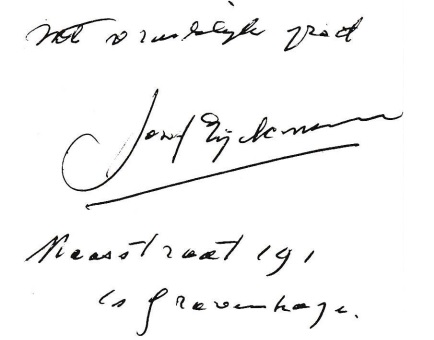 met vriendelijke groet
Josef Eijckmann
Maasstraat 191
's Gravenhage.